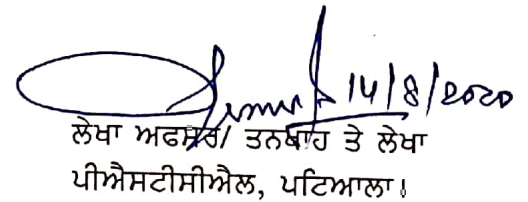 14/8/2020
ਲੇਖਾ ਅਫਸਰ/ ਤਨਖਾਹ ਤੇ ਲੇਖਾ
ਪੀਐਸਟੀਸੀਐਲ, ਪਟਿਆਲਾ।